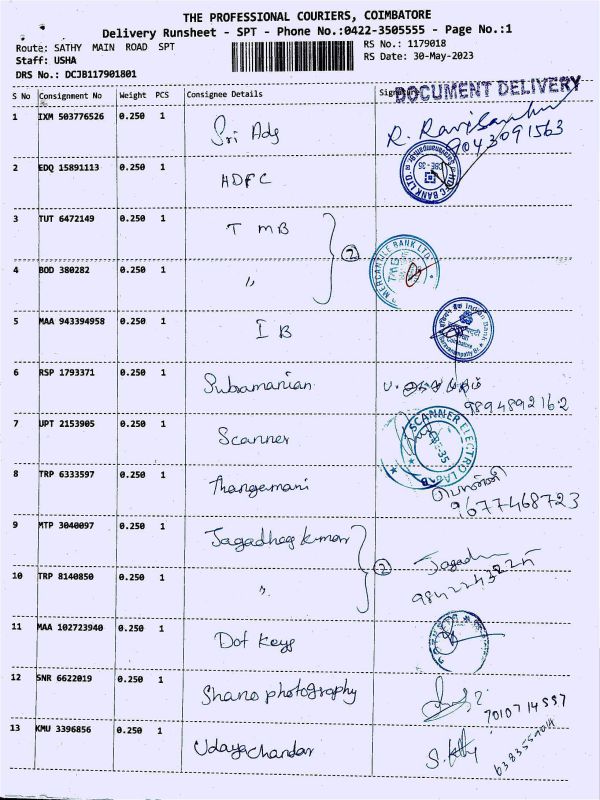 THE PROFESSIONAL COURIERS, COIMBATORE
Delivery Runsheet - SPT - Phone No.:0422-3505555 - Page No.:1
Route: SATHY MAIN ROAD SPT
RS No.: 1179018
Staff: USHA
RS Date: 30-May-2023
DRS No.: DCJB117901801
S No Consignment No Weight PCS Consignee Details Signature
DOCUMENT DELIVERY
1 IXM 503776526 0.250 1 Sri Ads R. Ravisankar
9043091563
2 EDQ 15891113 0.250 1 HDFC
HDFC BANK LTD.
3 TUT 6472149 0.250 1 TMB
②
MERCANTILE BANK LTD.
TMB
4 BOD 380282 0.250 1 〃
5 MAA 943394958 0.250 1 IB
Indian Bank
6 RSP 1793371 0.250 1 Subramanian
9894892162
7 UPT 2153905 0.250 1 Scanner
SCANNER ELECTRO LAB
8 TRP 6333597 0.250 1 Thangamani பொன்னி
9677468723
9 MTP 3040097 0.250 1 Jagadhees kumar
②
10 TRP 8140850 0.250 1 〃
11 MAA 102723940 0.250 1 Dot Keys
12 SNR 6622019 0.250 1 Shano photography
13 KMU 3396856 0.250 1 Udaya chandar